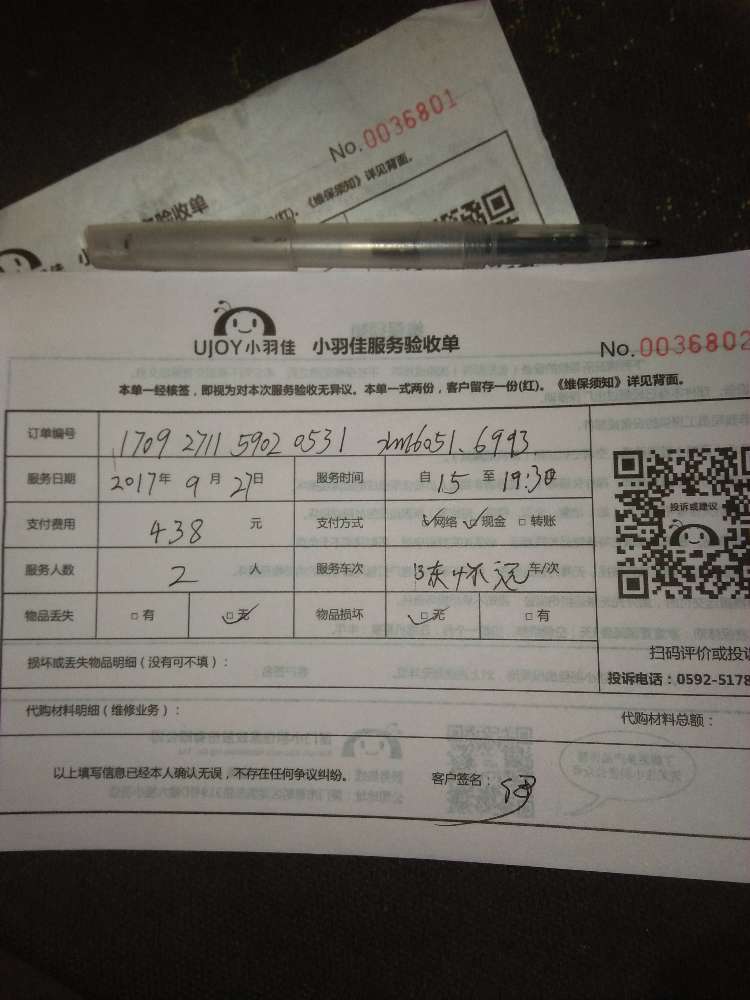 No.0036801
验收单
(红)。《维保须知》详见背面。
UJOY小羽佳 小羽佳服务验收单 No.0036802
本单一经核签，即视为对本次服务验收无异议。本单一式两份，客户留存一份(红)。《维保须知》详见背面。
订单编号 1709 2711 5902 0531
服务日期 2017年 9月 27日 服务时间 自 15 至 19:30
支付费用 438 元 支付方式 ☑网络 ☑现金 □转账
服务人数 2 人 服务车次 车/次
物品丢失 □有 ☑无 物品损坏 ☑无 □有
投诉或建议
损坏或丢失物品明细（没有可不填）：
扫码评价或投诉
投诉电话：0592-5178
代购材料明细（维修业务）：
代购材料总额：
以上填写信息已经本人确认无误，不存在任何争议纠纷。 客户签名：